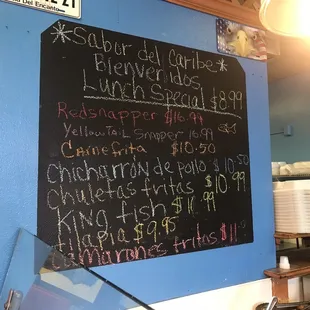 22 L2
Del Encanto
*Sabor del Caribe*
Bienvenidos
Lunch Special $8.99
Redsnapper $16.99
Yellowtail Snapper 16.99
Carne frita $10.50
Chicharrón de pollo $10.50
Chuletas fritas $10.99
King fish $11.99
tilapia $9.95
Camarones fritas $11.